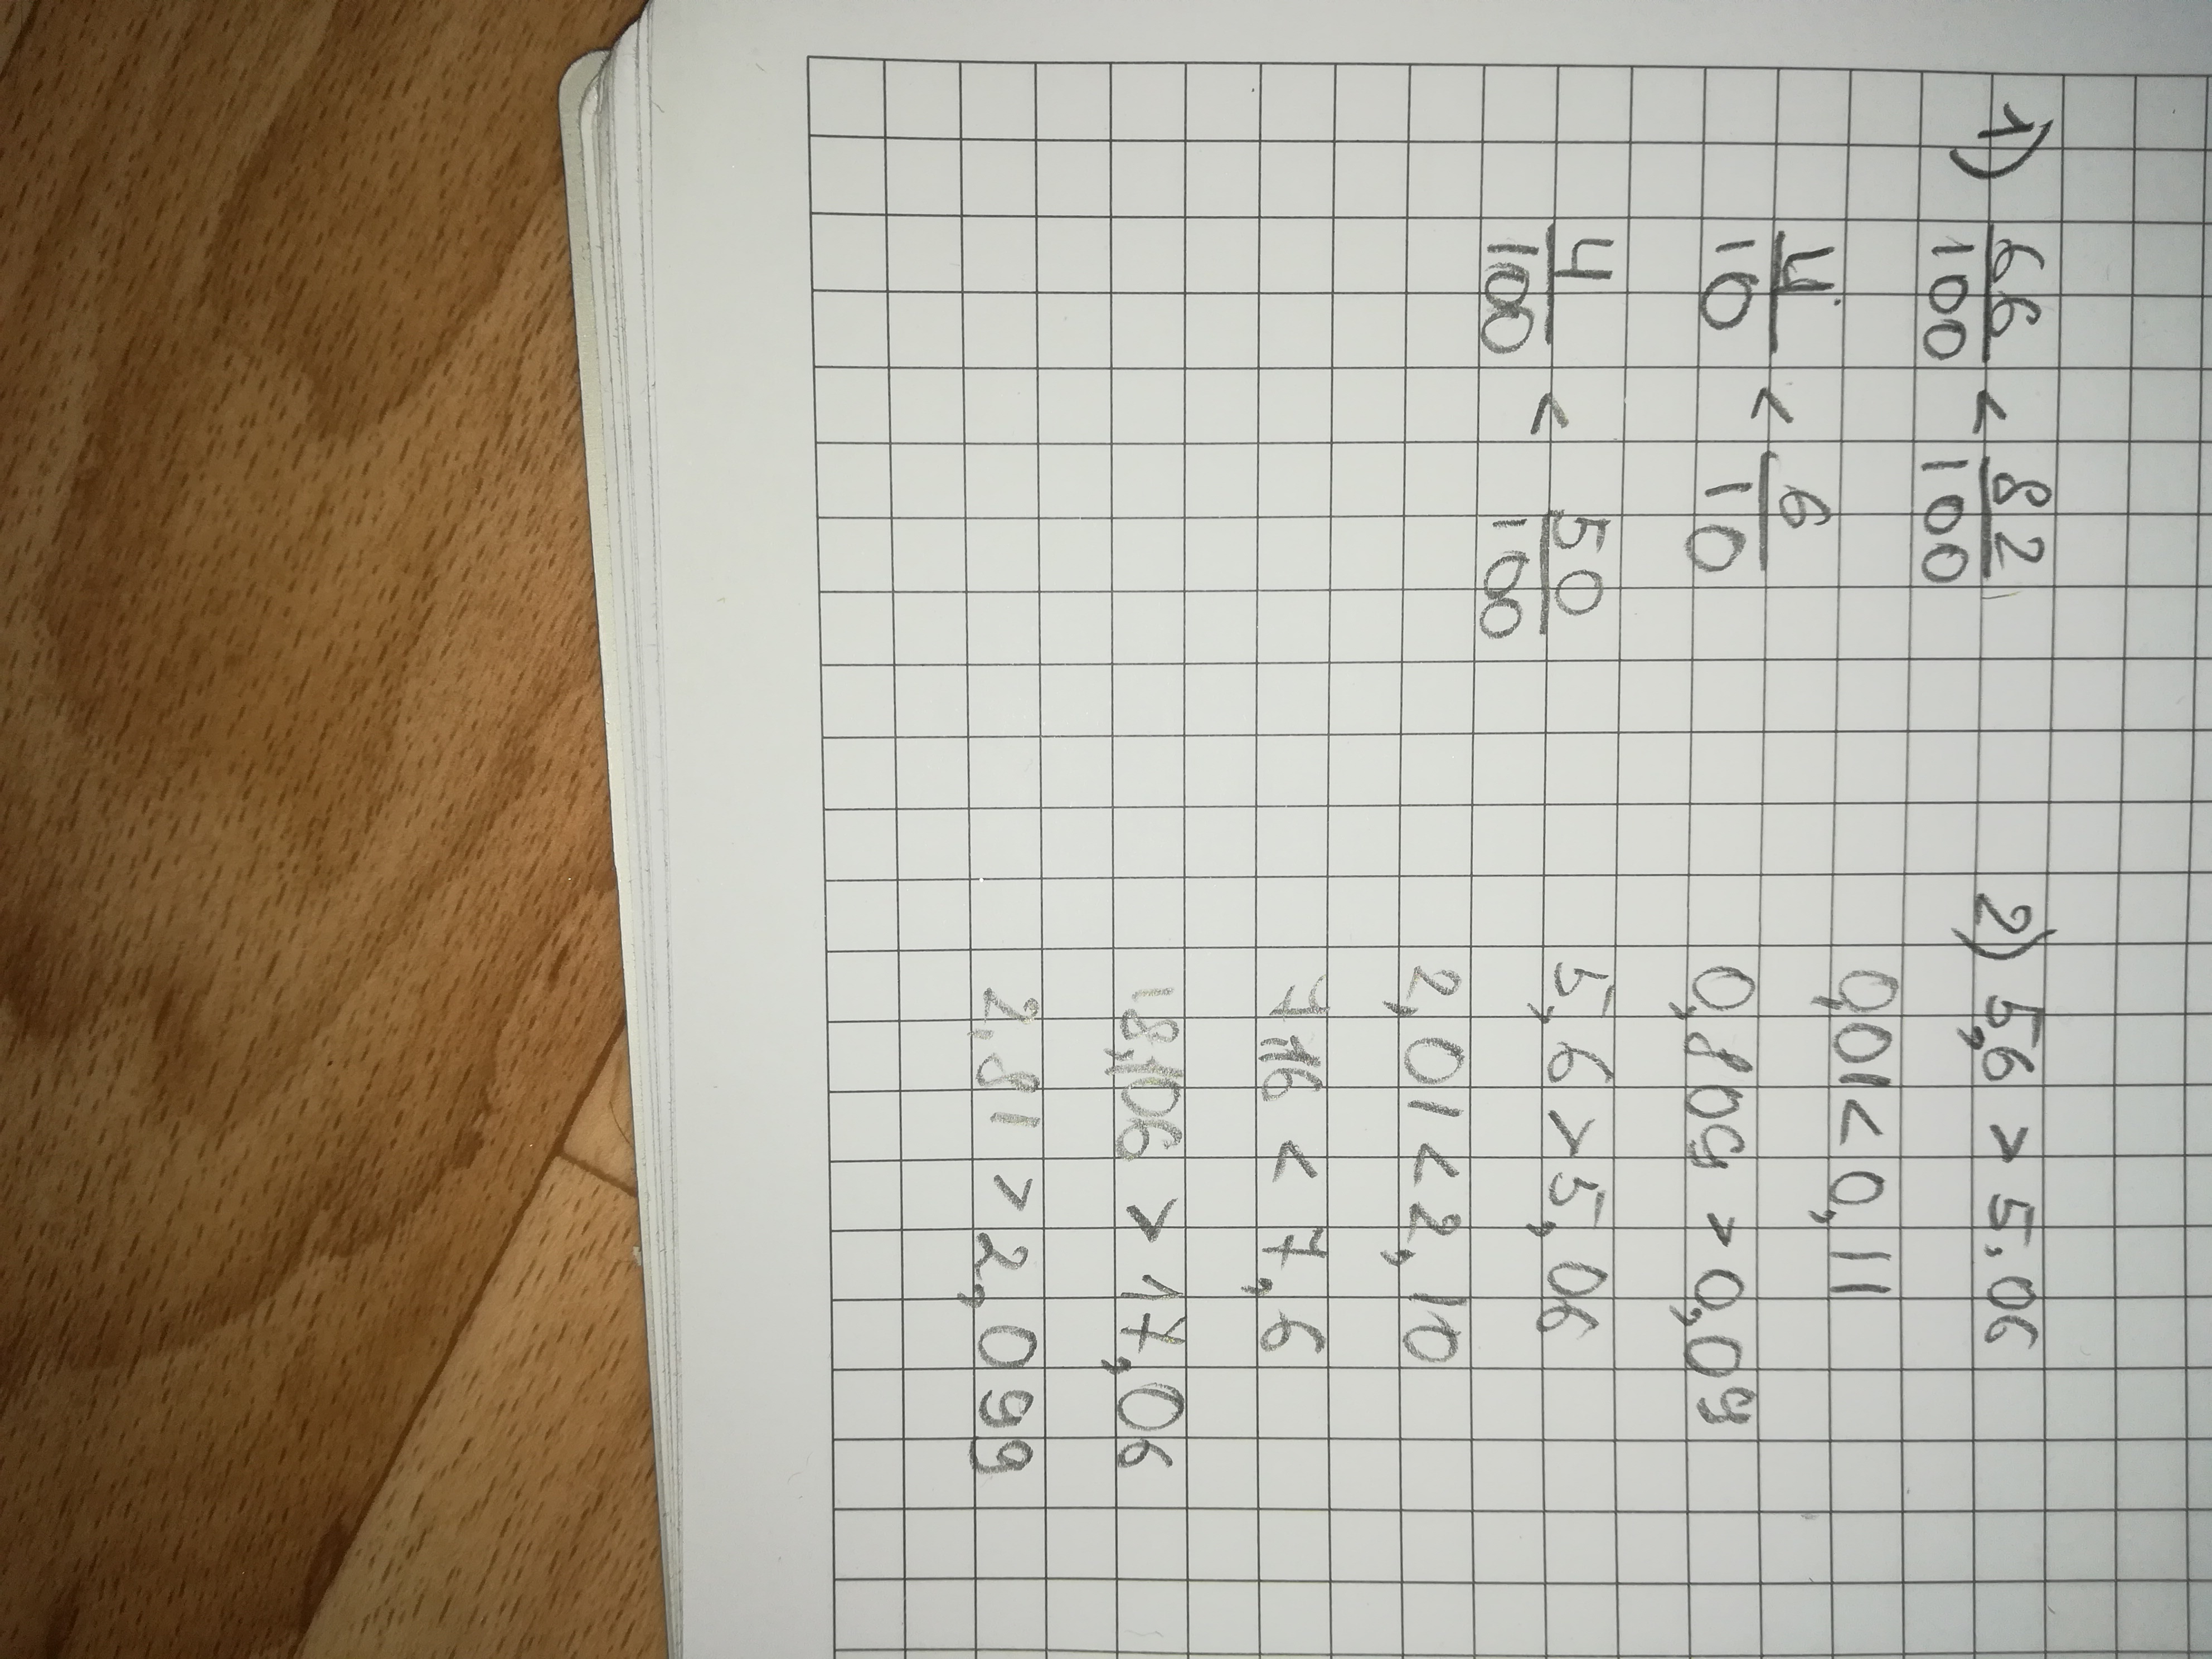 1) 66/100 < 82/100
4/10 < 6/10
4/100 < 50/100
2) 5,6 > 5.06
0,01 < 0,11
0,809 > 0,09
5,6 > 5,06
2,01 < 2,10
7,16 < 7,6
18,106 > 17,06
2,811 > 2,099